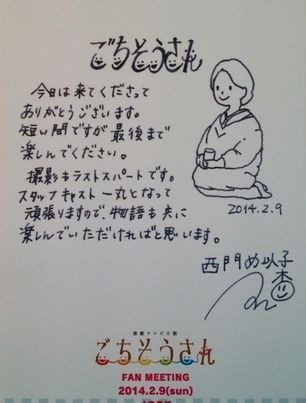 ごちそうさん
今日は来てくださって
ありがとうございます。
短い間ですが最後まで
楽しんでください。
撮影もラストスパートです。
スタッフキャスト一丸となって
頑張りますので、物語も共に
楽しんでいただければと思います。
2014.2.9
西門め以子
杏
連続テレビ小説
ごちそうさん
FAN MEETING
2014.2.9(sun)